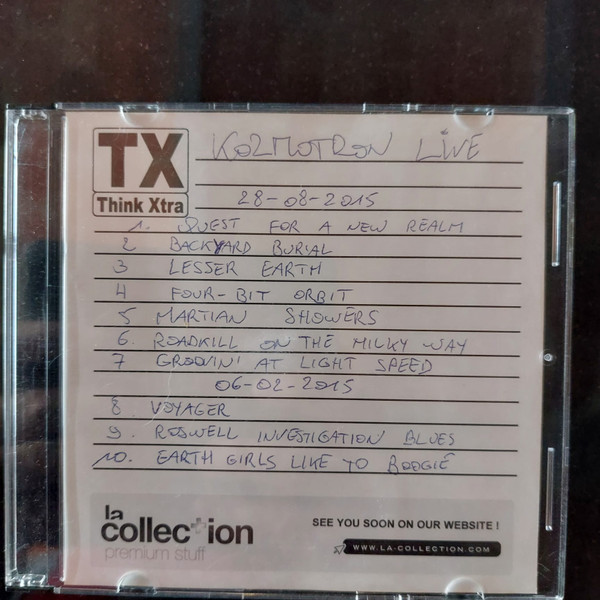 TX
Think Xtra
KOZMOTRON LIVE
28-08-2015
1. QUEST FOR A NEW REALM
2 BACKYARD BURIAL
3 LESSER EARTH
4 FOUR-BIT ORBIT
5 MARTIAN SHOWERS
6. ROADKILL ON THE MILKY WAY
7 GROOVIN' AT LIGHT SPEED
06-02-2015
8. VOYAGER
9. ROSWELL INVESTIGATION BLUES
10. EARTH GIRLS LIKE TO BOOGIE
la
collection
premium stuff
SEE YOU SOON ON OUR WEBSITE !
WWW.LA-COLLECTION.COM